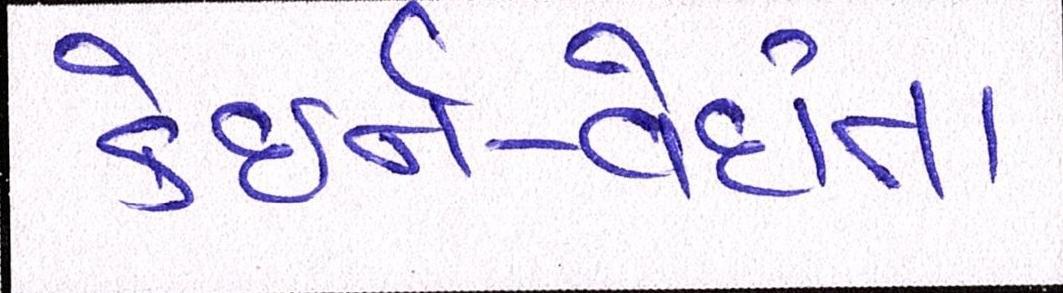 કેઇર્ન-વેદાંતા